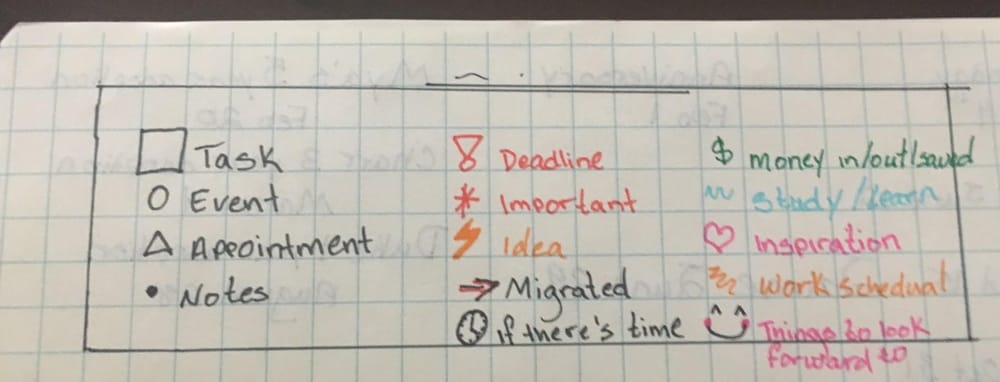 Task
Event
Appointment
Notes
Deadline
Important
Idea
Migrated
if there's time
$ money in/out/saved
Study/Learn
Inspiration
Work schedual
Things to look
forward to